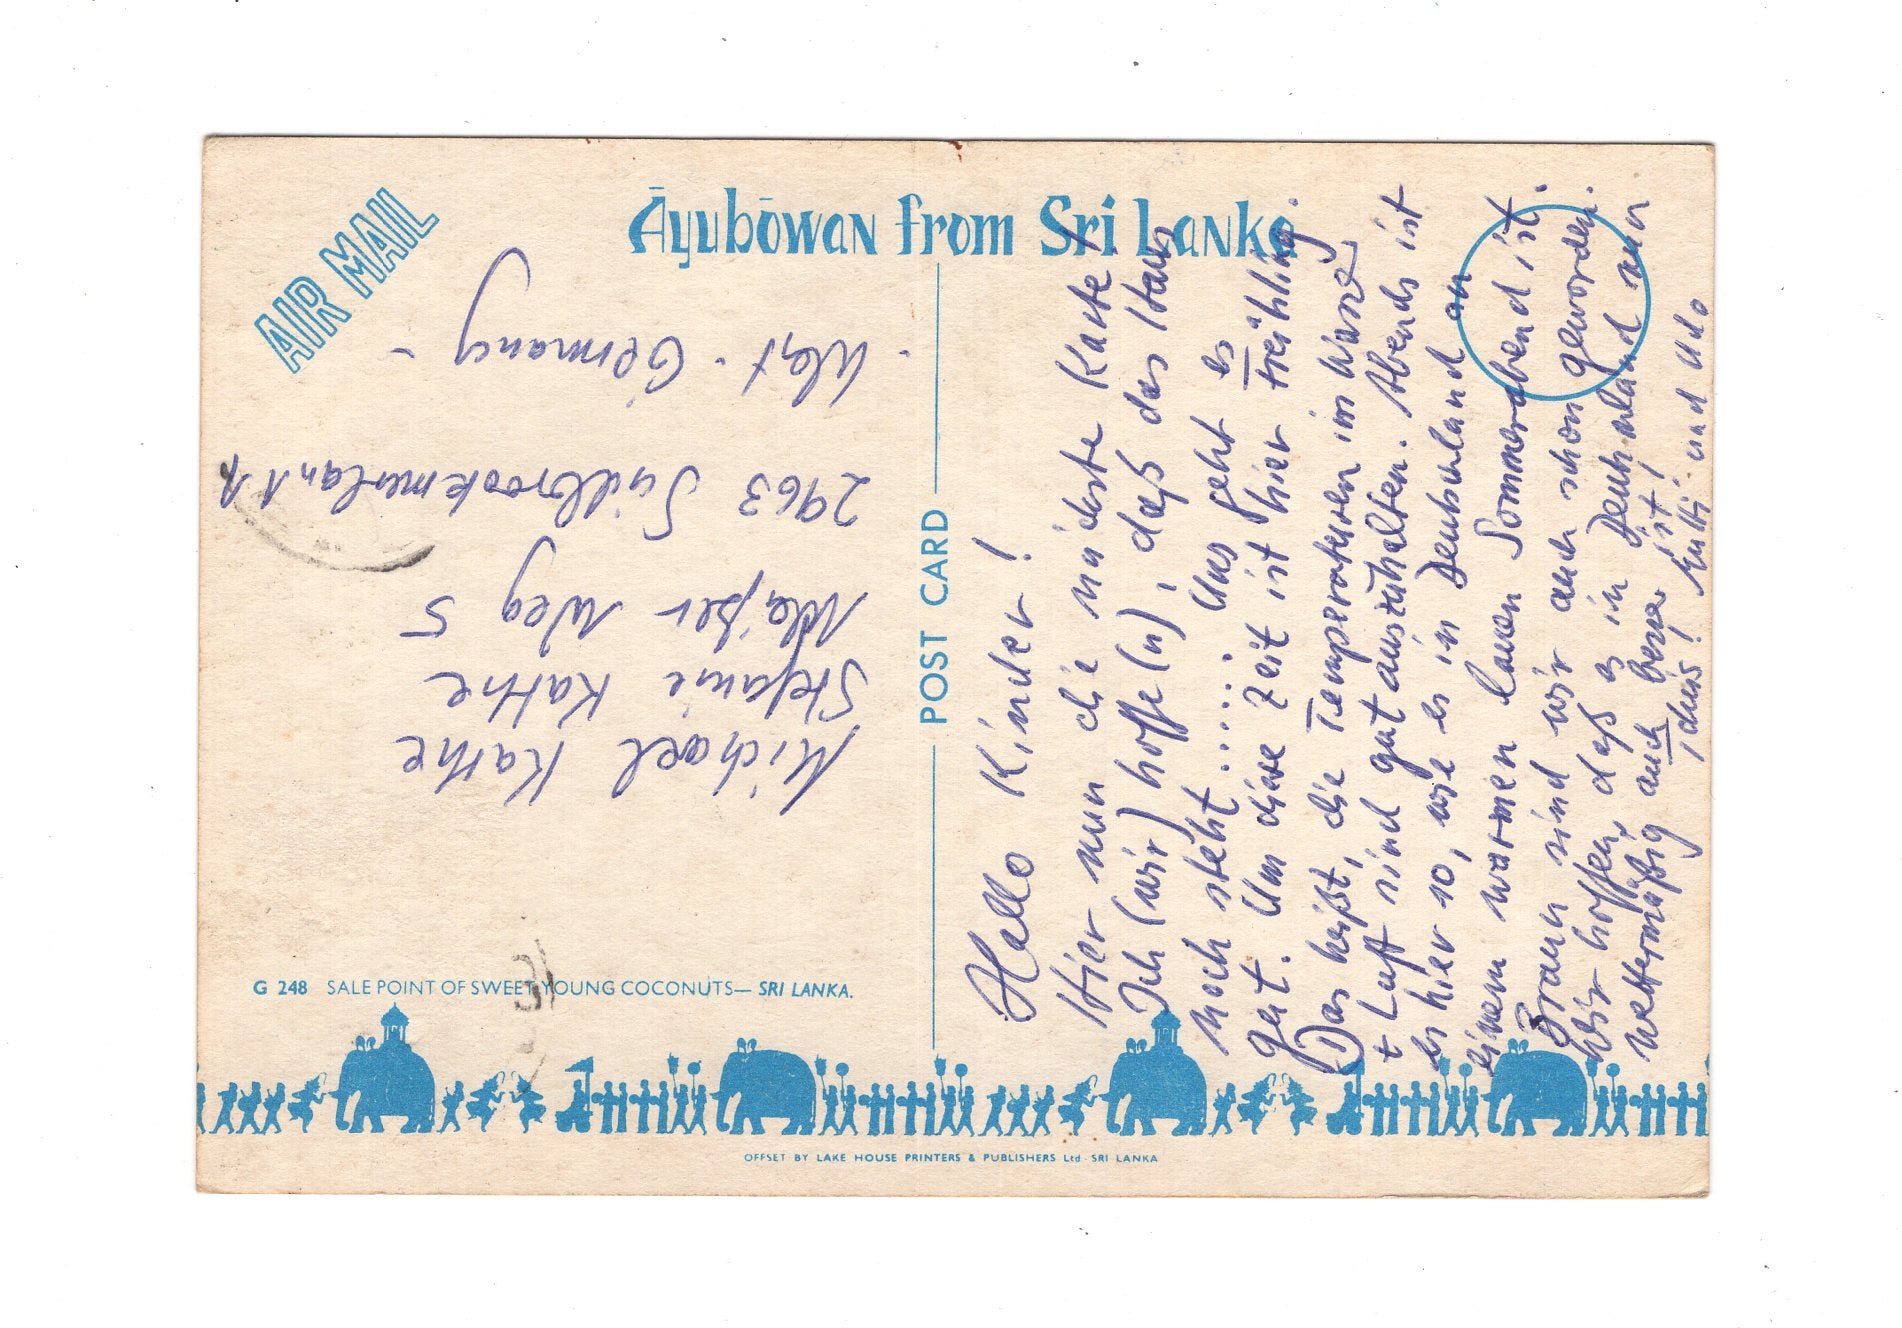 AIR MAIL
Āyubōwan from Sri Lanka
POST CARD
Michael Kathe
Stefanie Kathe
Weg 5
2963 Südbrookmerland 1
- West-Germany -
Hallo Kinder!
Hier nun die nächste Karte!
Ich (wir) hoffe(n), daß das Haus
noch steht..... Uns geht es
gut. Um diese Zeit ist hier "Frühling".
Das heißt, die Temperaturen im Wasser
+ Luft sind gut auszuhalten. Abends ist
es hier so, wie es in Deutschland an
einem warmen lauen Sommerabend ist.
Braun sind wir auch schon geworden.
Wir hoffen, daß es in Deutschland nun
wettermäßig auch besser ist!
Tschüs! Mutti und Udo
G 248 SALE POINT OF SWEET YOUNG COCONUTS— SRI LANKA.
OFFSET BY LAKE HOUSE PRINTERS & PUBLISHERS Ltd · SRI LANKA